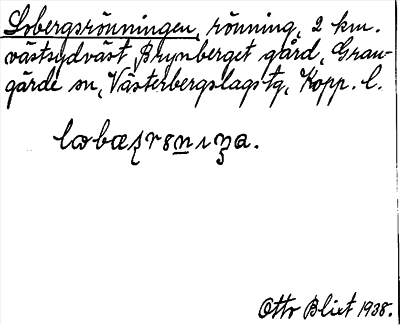 Lobergsrönningen, rönning, 2 km.
västsydväst Brynberget gård, Gran-
gärde sn, Västerbergslags tg, Kopp. l.
Otto Blixt 1938.